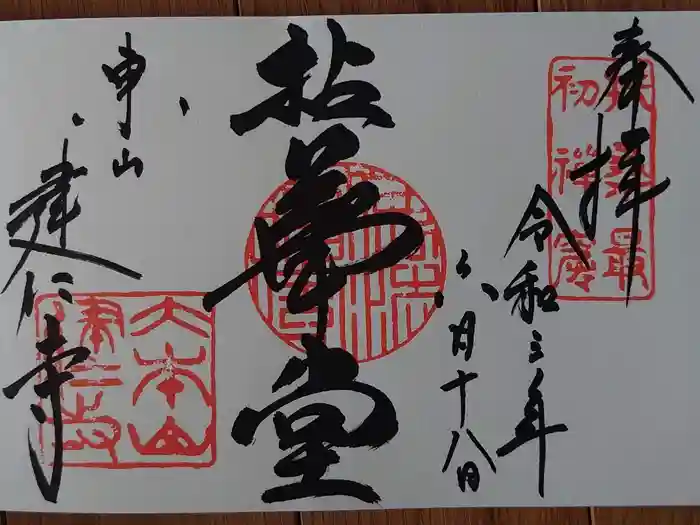 奉拝
扶桑最
初禅窟
令和三年
六月十八日
拈華堂
東山
建仁寺
大本山
建仁寺